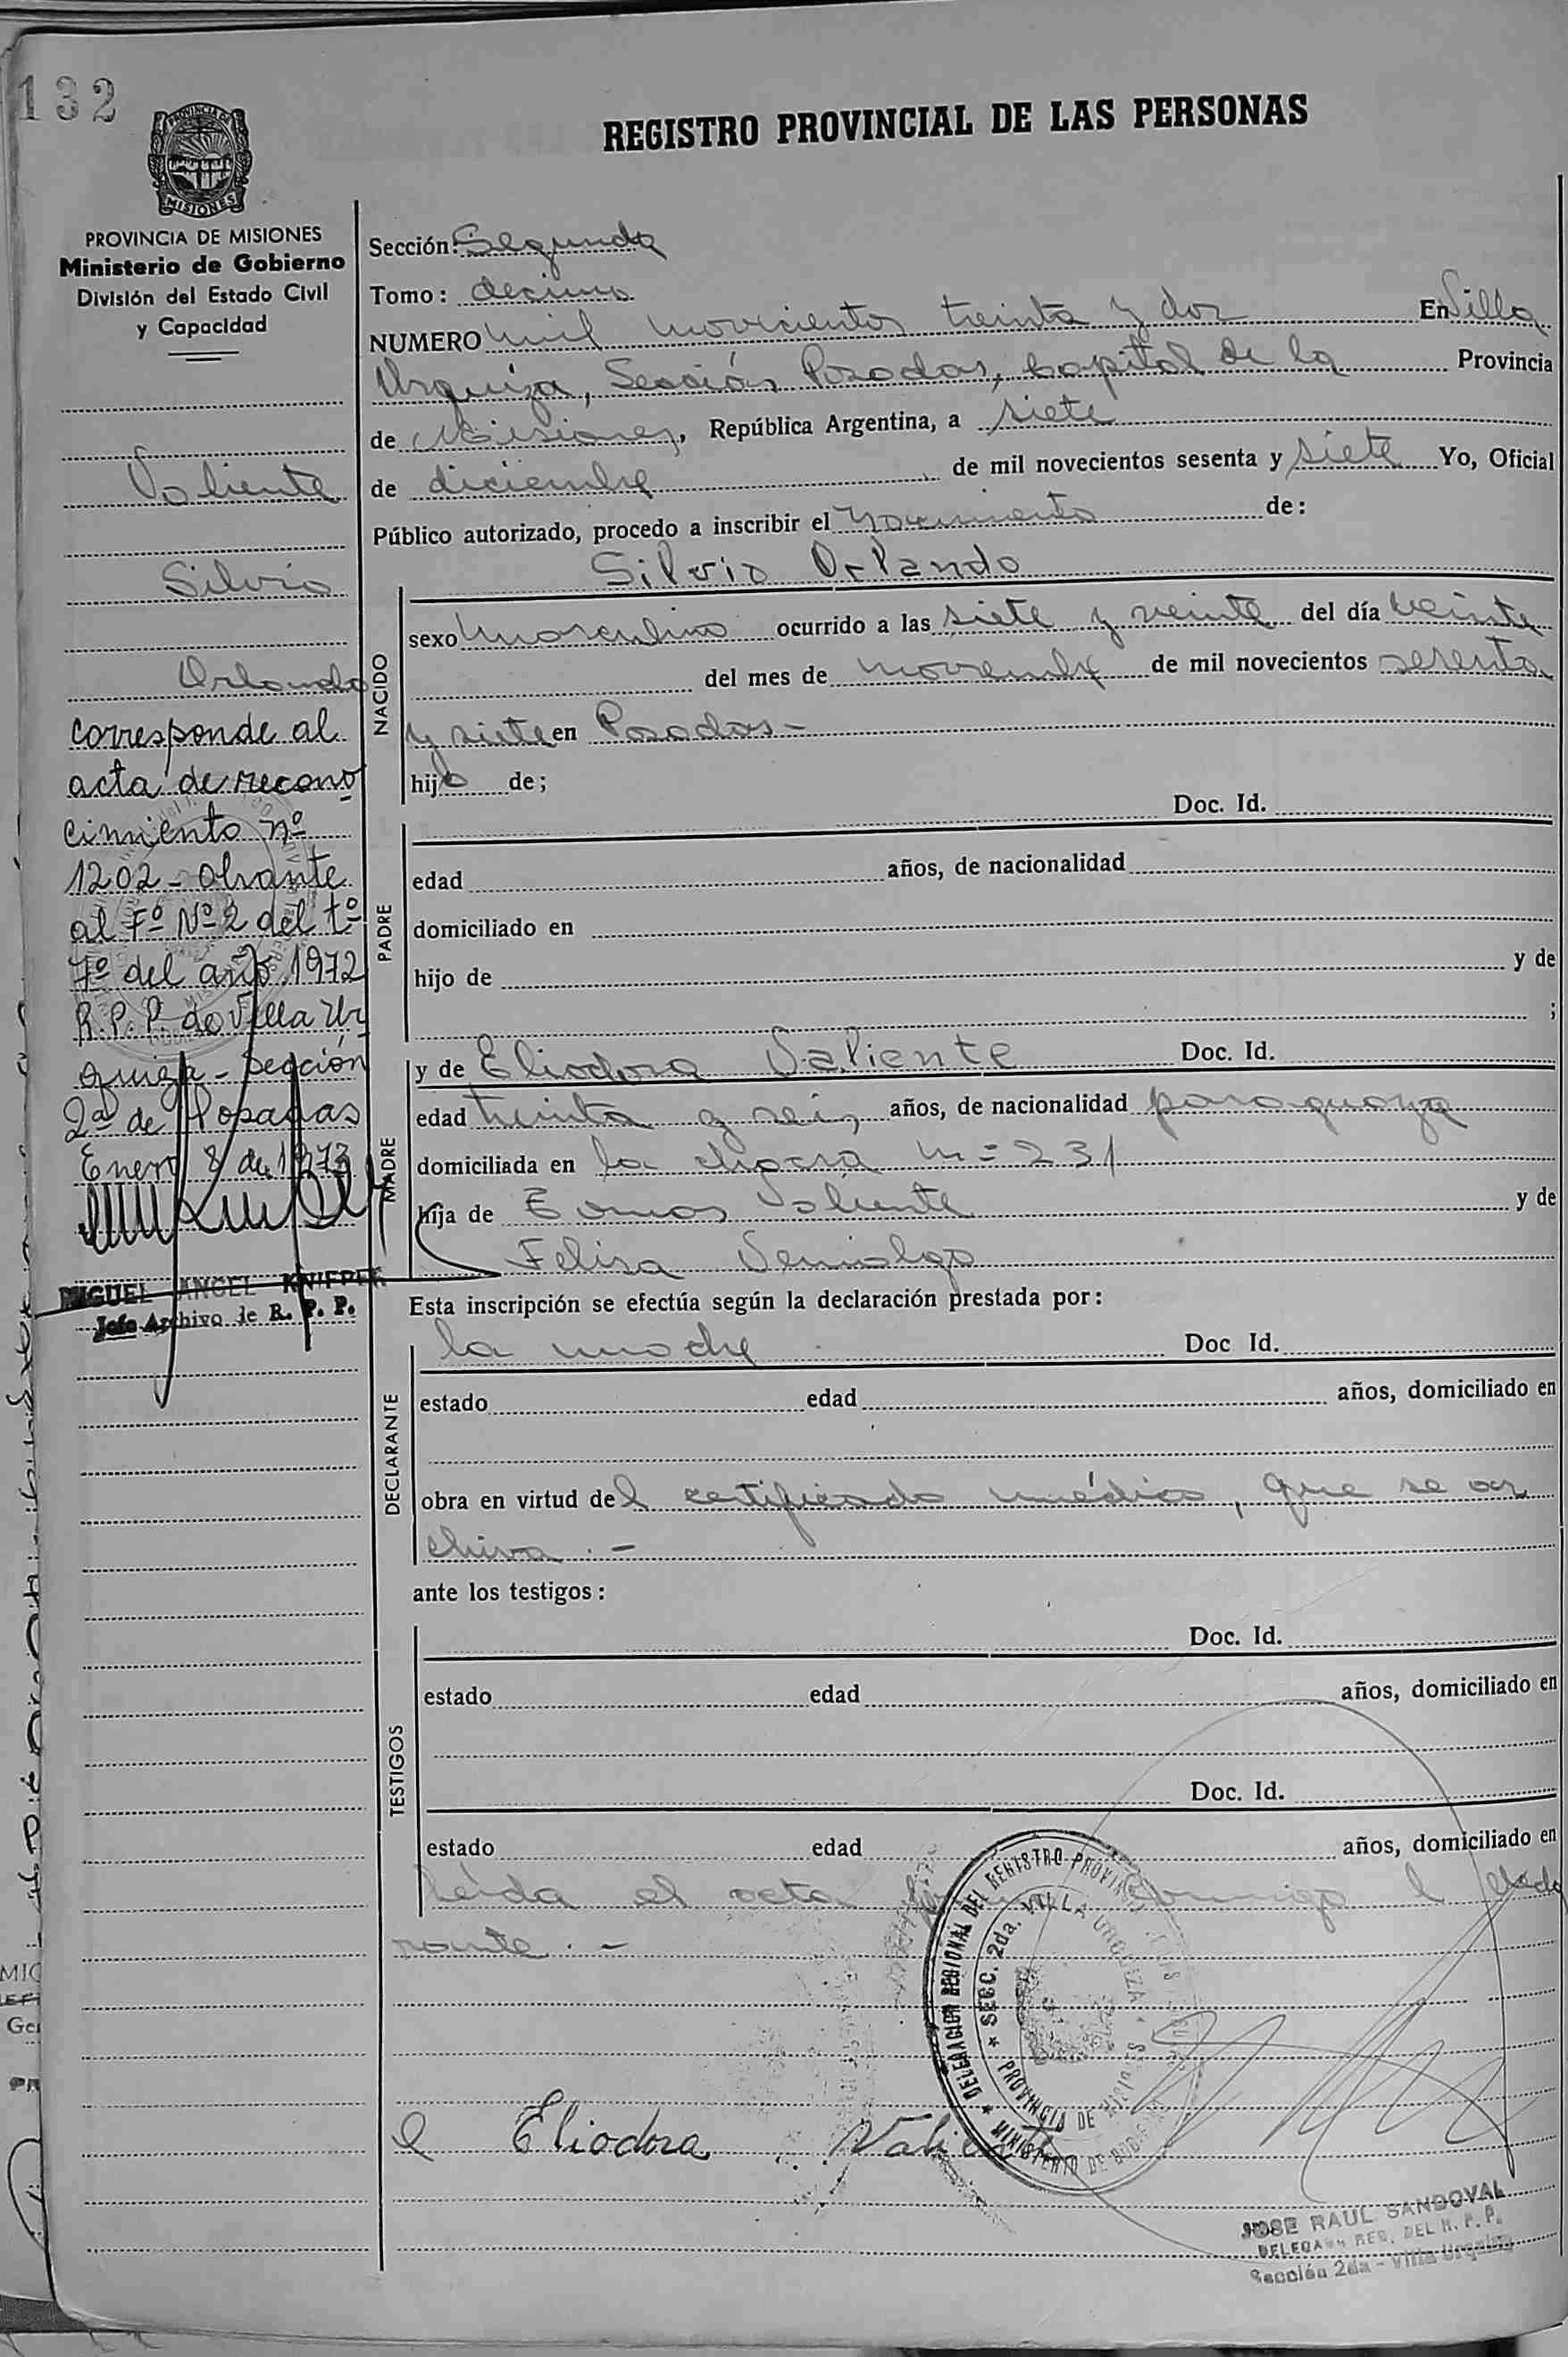 132
REGISTRO PROVINCIAL DE LAS PERSONAS
PROVINCIA DE
MISIONES
PROVINCIA DE MISIONES
Ministerio de Gobierno
División del Estado Civil
y Capacidad
Valiente
Silvio
Orlando
corresponde al
acta de recono
cimiento nº
1202 - obrante
al Fº Nº 2 del tº
7º del año 1972
R.P.P. de Villa Ur
quiza - Sección
2ª de Posadas
Enero 8 de 1973
MIGUEL ANGEL KNIEPER
Jefe Archivo de R. P. P.
Sección: Segunda
Tomo: decimo
NUMERO mil novecientos treinta y dos En Villa
Urquiza, Sección Posadas, Capital de la Provincia
de Misiones, República Argentina, a siete
de diciembre de mil novecientos sesenta y siete Yo, Oficial
Público autorizado, procedo a inscribir el nacimiento de:
Silvio Orlando
NACIDO
sexo masculino ocurrido a las siete y veinte del día veinte
del mes de noviembre de mil novecientos sesenta
y siete en Posadas -
hijo de;
Doc. Id.
PADRE
edad años, de nacionalidad
domiciliado en
hijo de y de
;
MADRE
y de Eliodora Valiente Doc. Id.
edad treinta y seis años, de nacionalidad paraguaya
domiciliada en la chacra n= 231
hija de Tomas Valiente y de
Felisa
Esta inscripción se efectúa según la declaración prestada por:
DECLARANTE
la madre Doc Id.
estado edad años, domiciliado en
obra en virtud del certificado médico, que se ar
chiva . -
ante los testigos:
TESTIGOS
Doc. Id.
estado edad años, domiciliado en
Doc. Id.
estado edad años, domiciliado en
Leída el acta conmigo l decla
rante . -
DELEGACION REGIONAL DEL REGISTRO PROVINCIAL
SECC. 2da. VILLA URQUIZA
PROVINCIA DE MISIONES
MINISTERIO DE GOBIERNO
Eliodora Valiente
JOSE RAUL SANDOVAL
DELEGADO REG. DEL R. P. P.
Sección 2da - Villa Urquiza